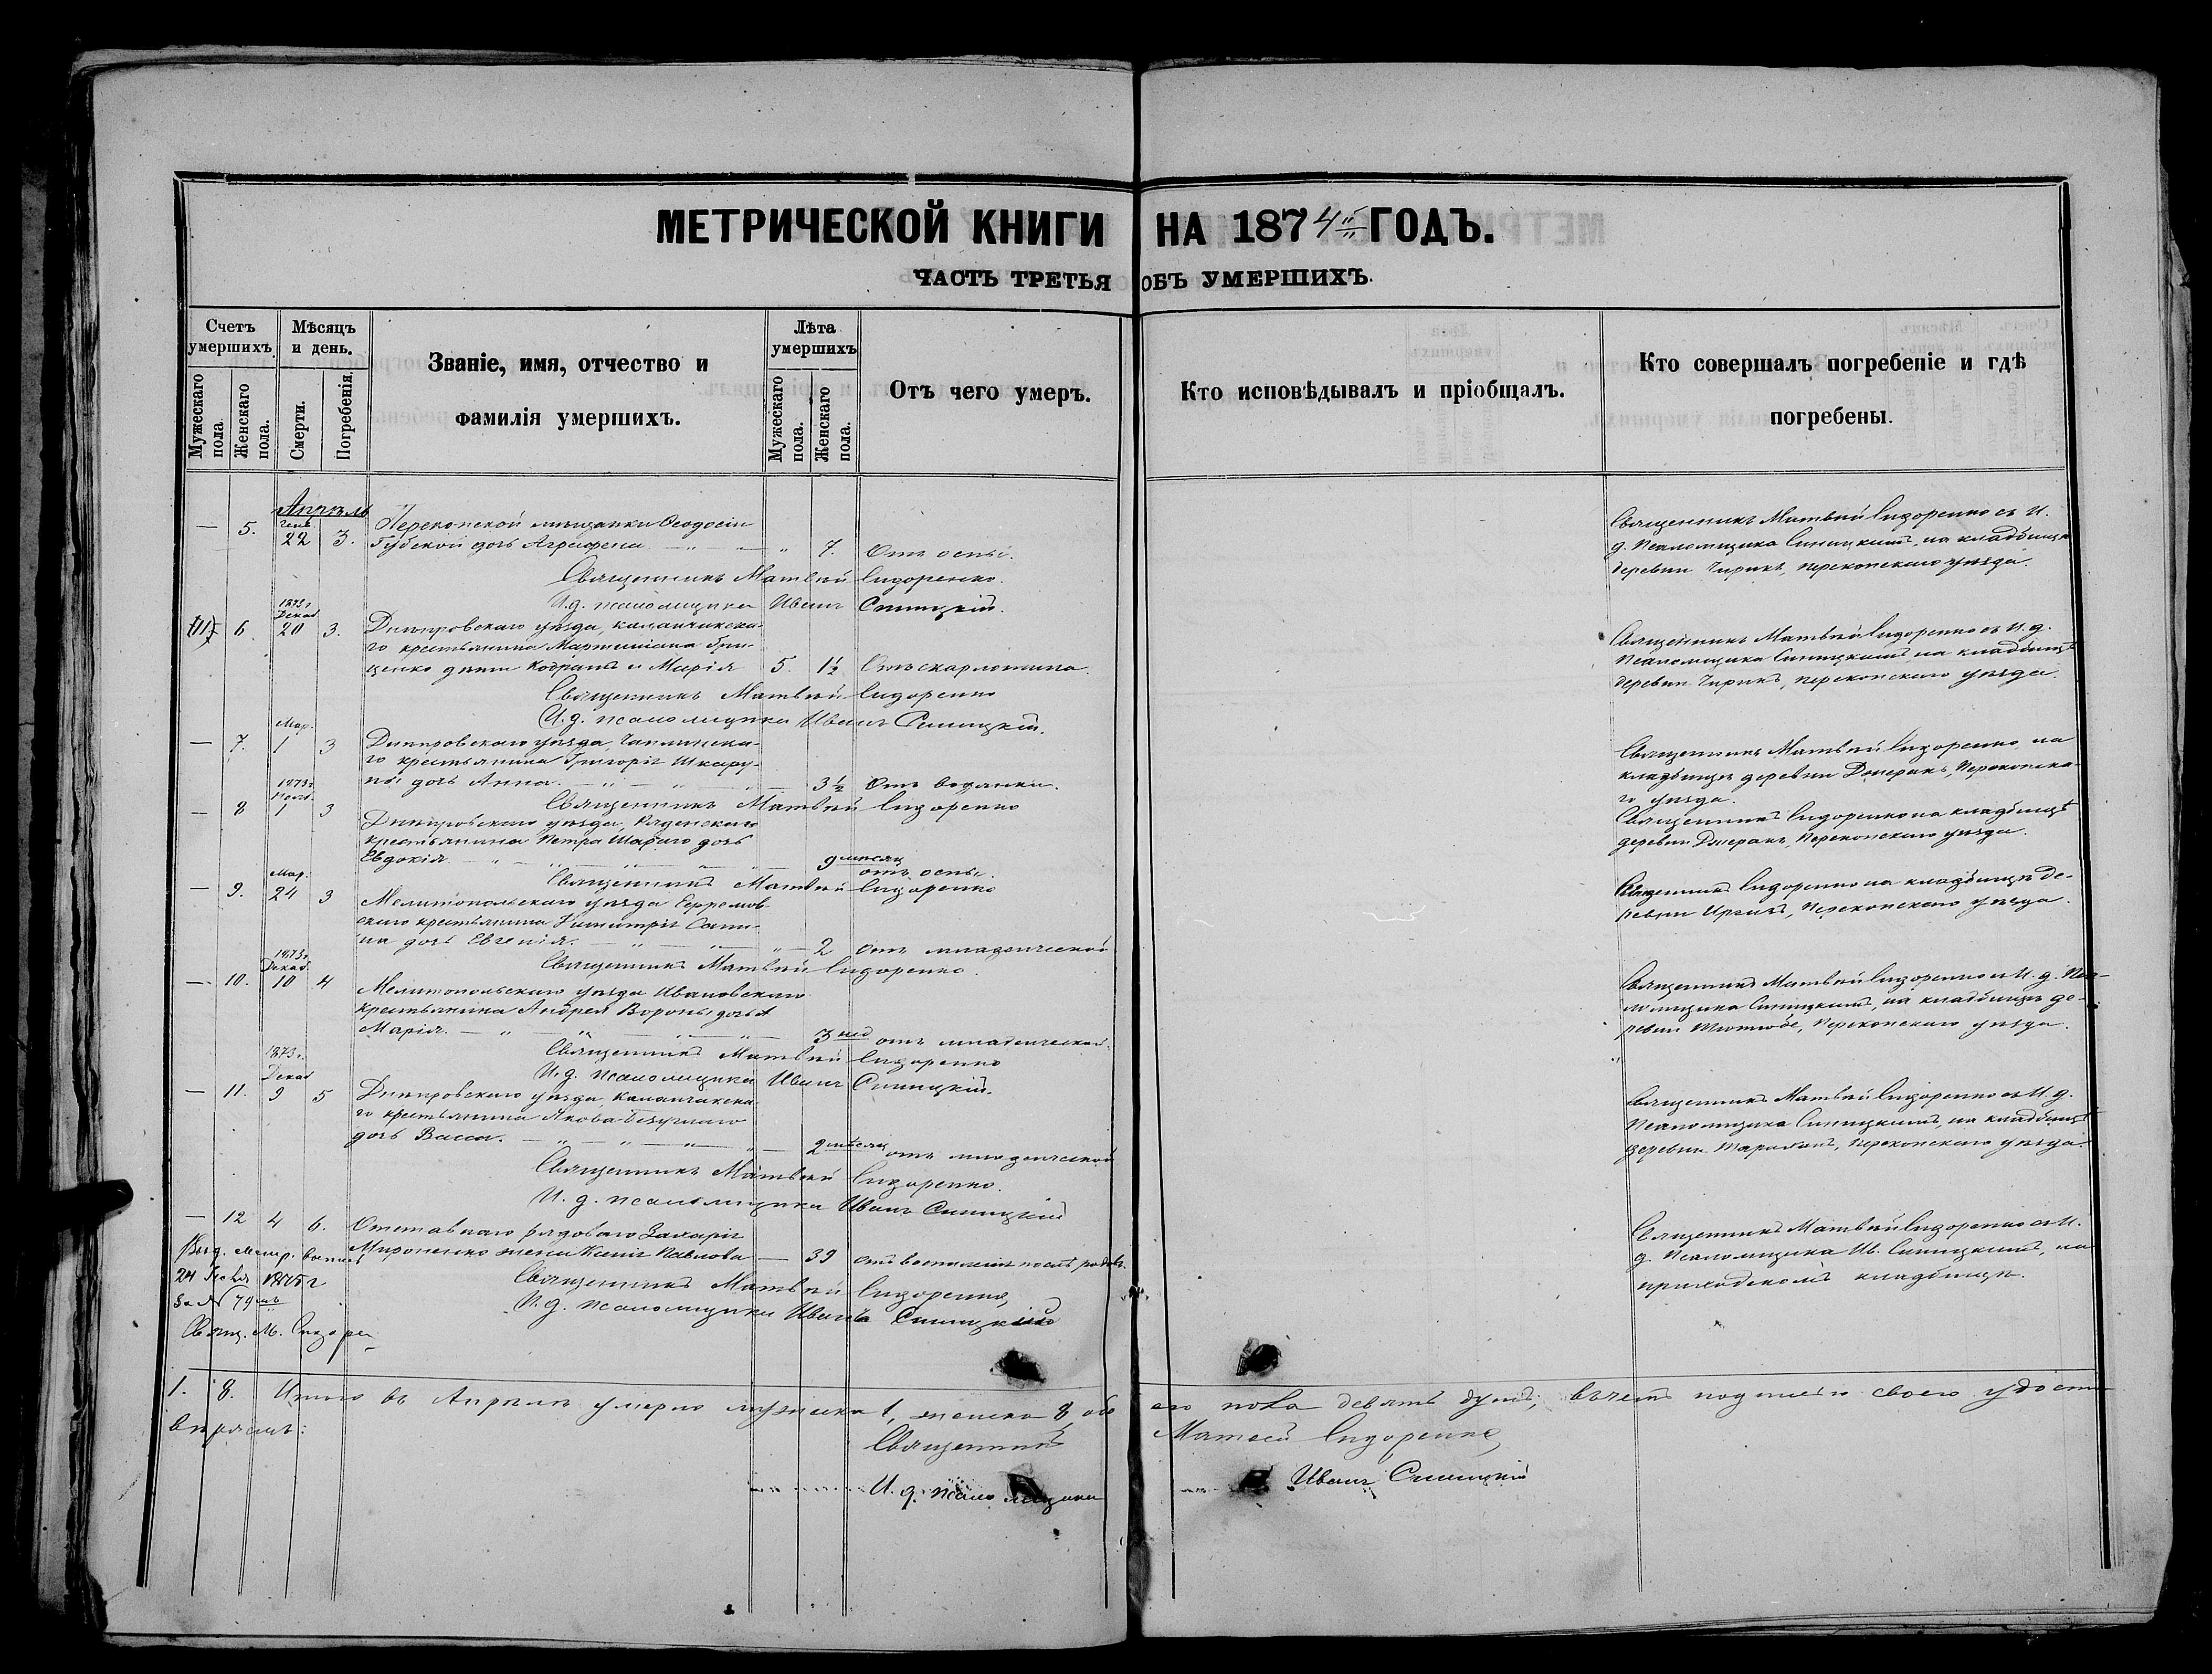 МЕТРИЧЕСКОЙ КНИГИ НА 1874й ГОДЪ.
ЧАСТЬ ТРЕТЬЯ ОБЪ УМЕРШИХЪ.
Счетъ умершихъ.
Мужескаго пола.
Женскаго пола.
Мѣсяцъ и день.
Смерти.
Погребенія.
Званіе, имя, отчество и
фамилія умершихъ.
Лѣта умершихъ
Мужескаго пола.
Женскаго пола.
Отъ чего умеръ.
Кто исповѣдывалъ и пріобщалъ.
Кто совершалъ погребеніе и гдѣ
погребены.
Апрѣль
— 5. 22 3. Перекопской мѣщанки Ѳеодосіи
Губской дочь Агрефена — " — " 7. Отъ оспы.
Священникъ Матвѣй Сидоренко.
И. д. псаломщика Иванъ Синицкій.
Священникъ Матвѣй Сидоренко съ И.
д. Псаломщика Синицкимъ, на кладбищѣ
деревни Чирикъ, Перекопскаго уѣзда.
1873 г.
Декаб
6 20 3. Днѣпровскаго уѣзда, каланчакска-
го крестьянина Мартиніана Гри-
ценко дѣти Кодратъ и Марія 5. 1½ Отъ скарлатина.
Священникъ Матвѣй Сидоренко
И. д. псаломщика Иванъ Синицкій.
Священникъ Матвѣй Сидоренко съ И. д.
Псаломщика Синицкимъ, на кладбищѣ
деревни Чирикъ, перекопскаго уѣзда.
Мар.
— 7. 1 3 Днѣпровскаго уѣзда, Чаплинска-
го крестьянина Григорія Шкару-
пы дочь Анна. — " — " — 3½ Отъ водянки.
Священникъ Матвѣй Сидоренко
Священникъ Матвѣй Сидоренко на
кладбищѣ деревни Джеракъ, Перекопска-
го уѣзда.
1873 г
— 8 1 3 Днѣпровскаго уѣзда,
крестьянина Петра Шараго дочь
Евдокія. — " — " — 9 мѣсяц отъ оспы.
Священникъ Матвѣй Сидоренко
Священникъ Сидоренко на кладбищѣ
деревни Джеракъ, Перекопскаго уѣзда.
Мар.
— 9. 24 3 Мелитопольскаго уѣзда Ефремов-
скаго крестьянина Димитрія
дочь Евгенія. — " — " — 2 отъ младенческой
Священникъ Матвѣй Сидоренко.
Священникъ Сидоренко на кладбищѣ де-
ревни Перекопскаго уѣзда.
1873 г
Декаб
— 10. 10 4 Мелитопольскаго уѣзда Ивановскаго
крестьянина Андрея Вороны дочь
Марія. — " — " — 3 нед отъ младенческой.
Священникъ Матвѣй Сидоренко
И. д. псаломщика Иванъ Синицкій.
Священникъ Матвѣй Сидоренко съ И. д. Пса-
ломщика Синицкимъ, на кладбищѣ де-
ревни Перекопскаго уѣзда.
1873 г.
Декаб
— 11. 9 5 Днѣпровскаго уѣзда Каланчакска-
го крестьянина Якова Безуглаго
дочь Васса. — " — " — 2 мѣсяц отъ младенческой
Священникъ Матвѣй Сидоренко.
И. д. псаломщика Иванъ Синицкій
Священникъ Матвѣй Сидоренко съ И. д.
Псаломщика Синицкимъ, на кладбищѣ
деревни Тарханъ, Перекопскаго уѣзда.
— 12 4 6. Отставнаго рядоваго Захарія
Мироненко жена Ксенія Павлова — 39 отъ воспаленія послѣ родовъ.
Священникъ Матвѣй Сидоренко,
И. д. псаломщика Иванъ Синицкій
Священникъ Матвѣй Сидоренко съ И.
д. Псаломщика Ив. Синицкимъ, на
приходскомъ кладбищѣ.
Выд. метр. выпись
24
за № 79мъ
Свящ. М. Сидоре-
1. 8. Итого въ Апрѣлѣ умерло мужска 1, женска 8 обо его пола девять душъ, въ чемъ подписью своею удосто-
вѣряемъ:
Священникъ Матвей Сидоренко,
И. д. псаломщика Иванъ Синицкій